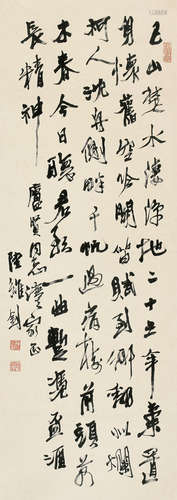 巴山楚水淒涼地二十三年棄置
身懷舊空吟聞笛賦到鄉翻似爛
柯人沈舟側畔千帆過病樹前頭萬
木春今日聽君歌一曲暫憑盃酒
長精神
賢同志家正
陸維釗